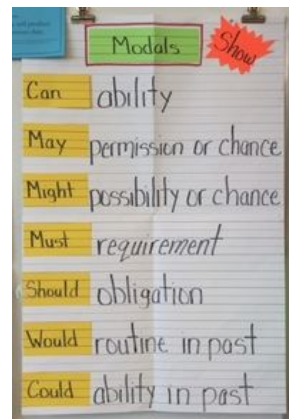 Modals
Show
Can ability
May permission or chance
Might possibility or chance
Must requirement
Should obligation
Would routine in past
Could ability in past